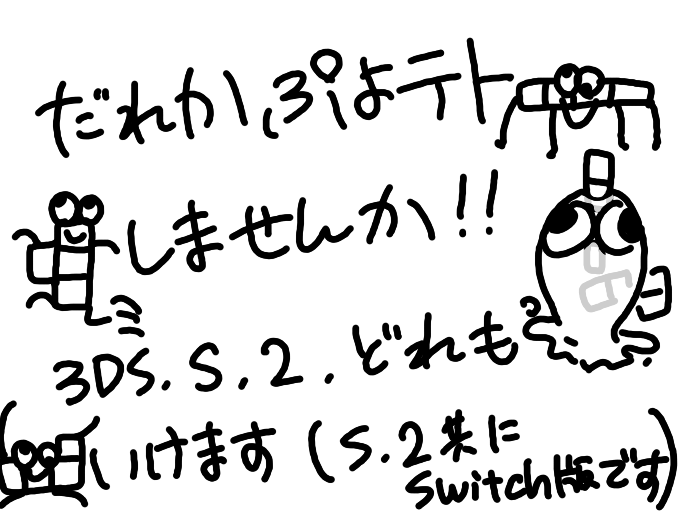 だれか、ぷよテト
しませんか!!
3DS.S.2.どれも
いけます(S.2共に
switch版です)